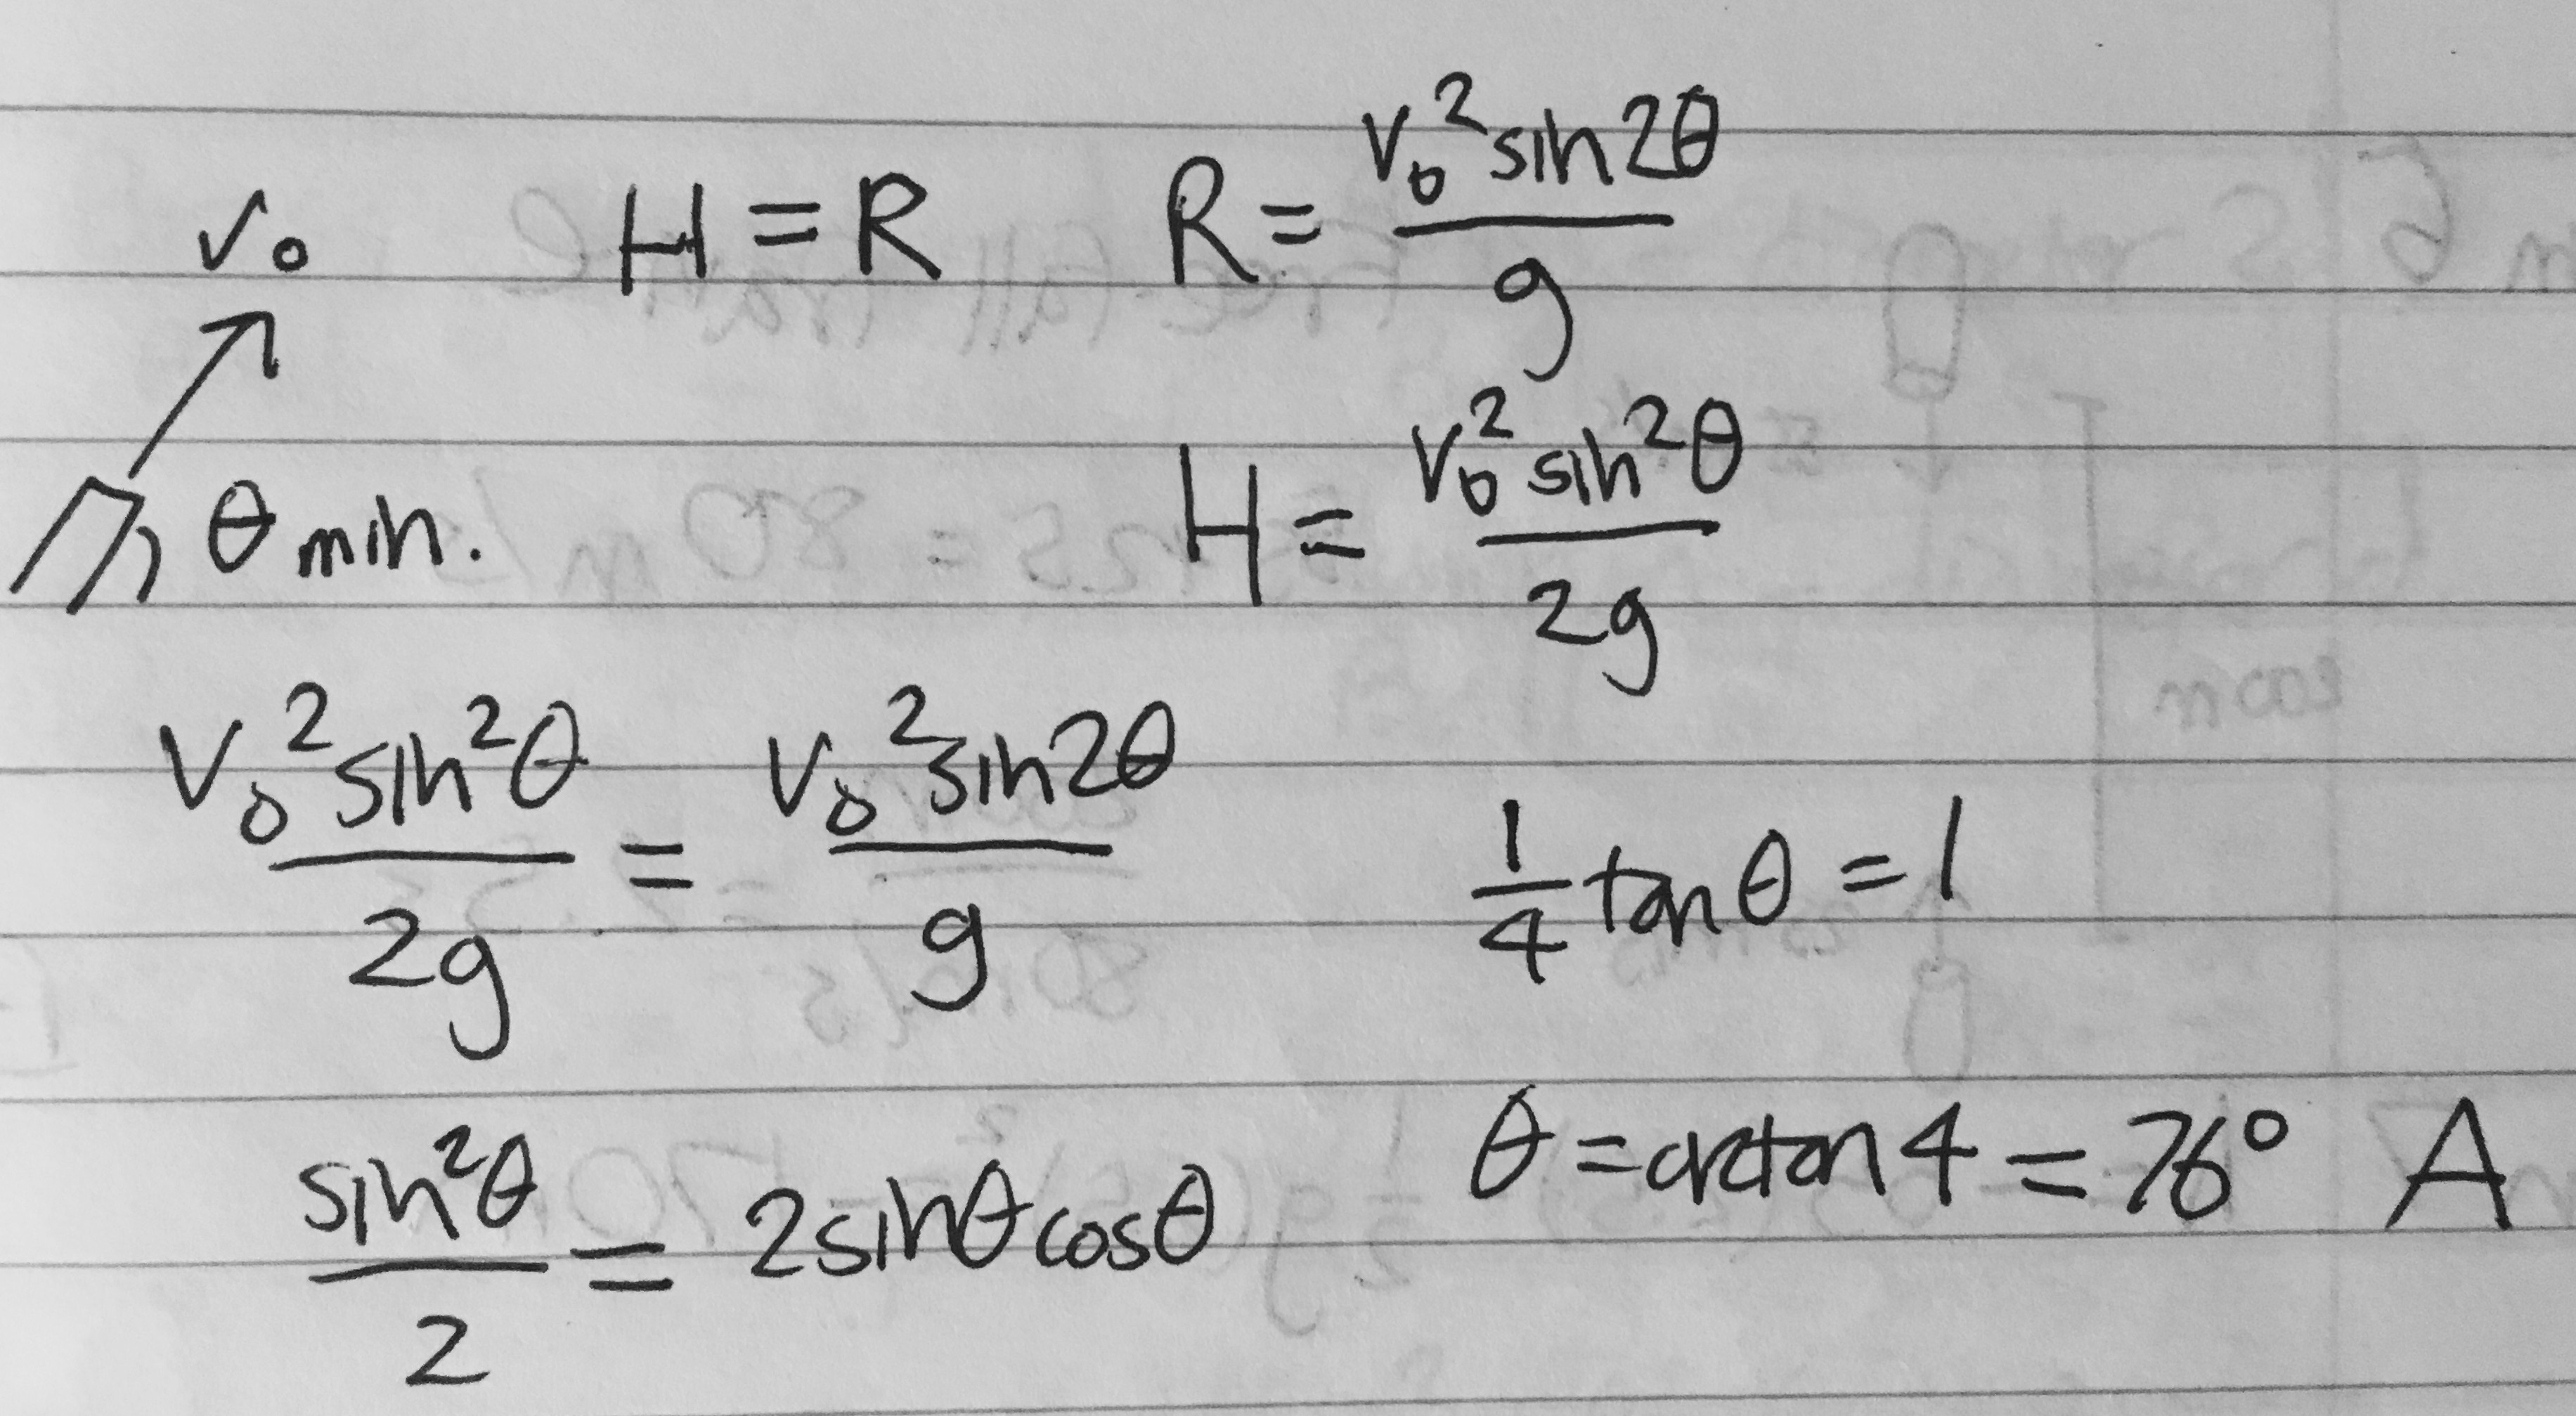 v₀ H = R R = v₀² sin2θ / g
θ min.
H = v₀² sin²θ / 2g
v₀² sin²θ / 2g = v₀² sin2θ / g
1/4 tanθ = 1
sin²θ / 2 = 2sinθcosθ
θ = arctan 4 = 76° A